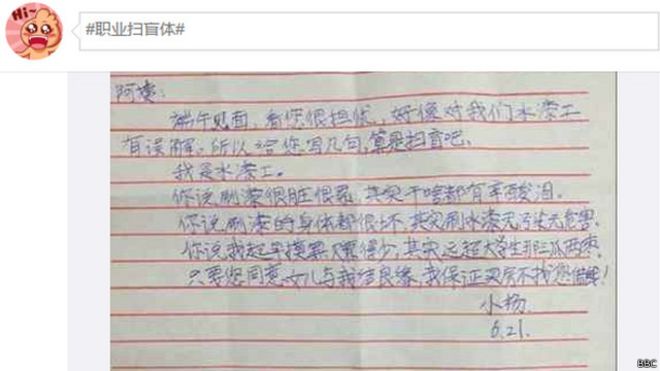 Hi~
#职业扫盲体
阿姨：
端午见面，看您很担忧，好像对我们水漆工
有误解，所以给您写几句，算是扫盲吧。
我是水漆工。
你说刷漆很脏很累，其实干啥都有辛酸泪。
你说刷漆的身体都很坏，其实刷水漆无污染无危害。
你说我起早摸黑赚得少，其实远超大学生那三瓜两枣。
只要您同意女儿与我结良缘，我保证买房不找您借钱！
小杨
6.21.
BBC